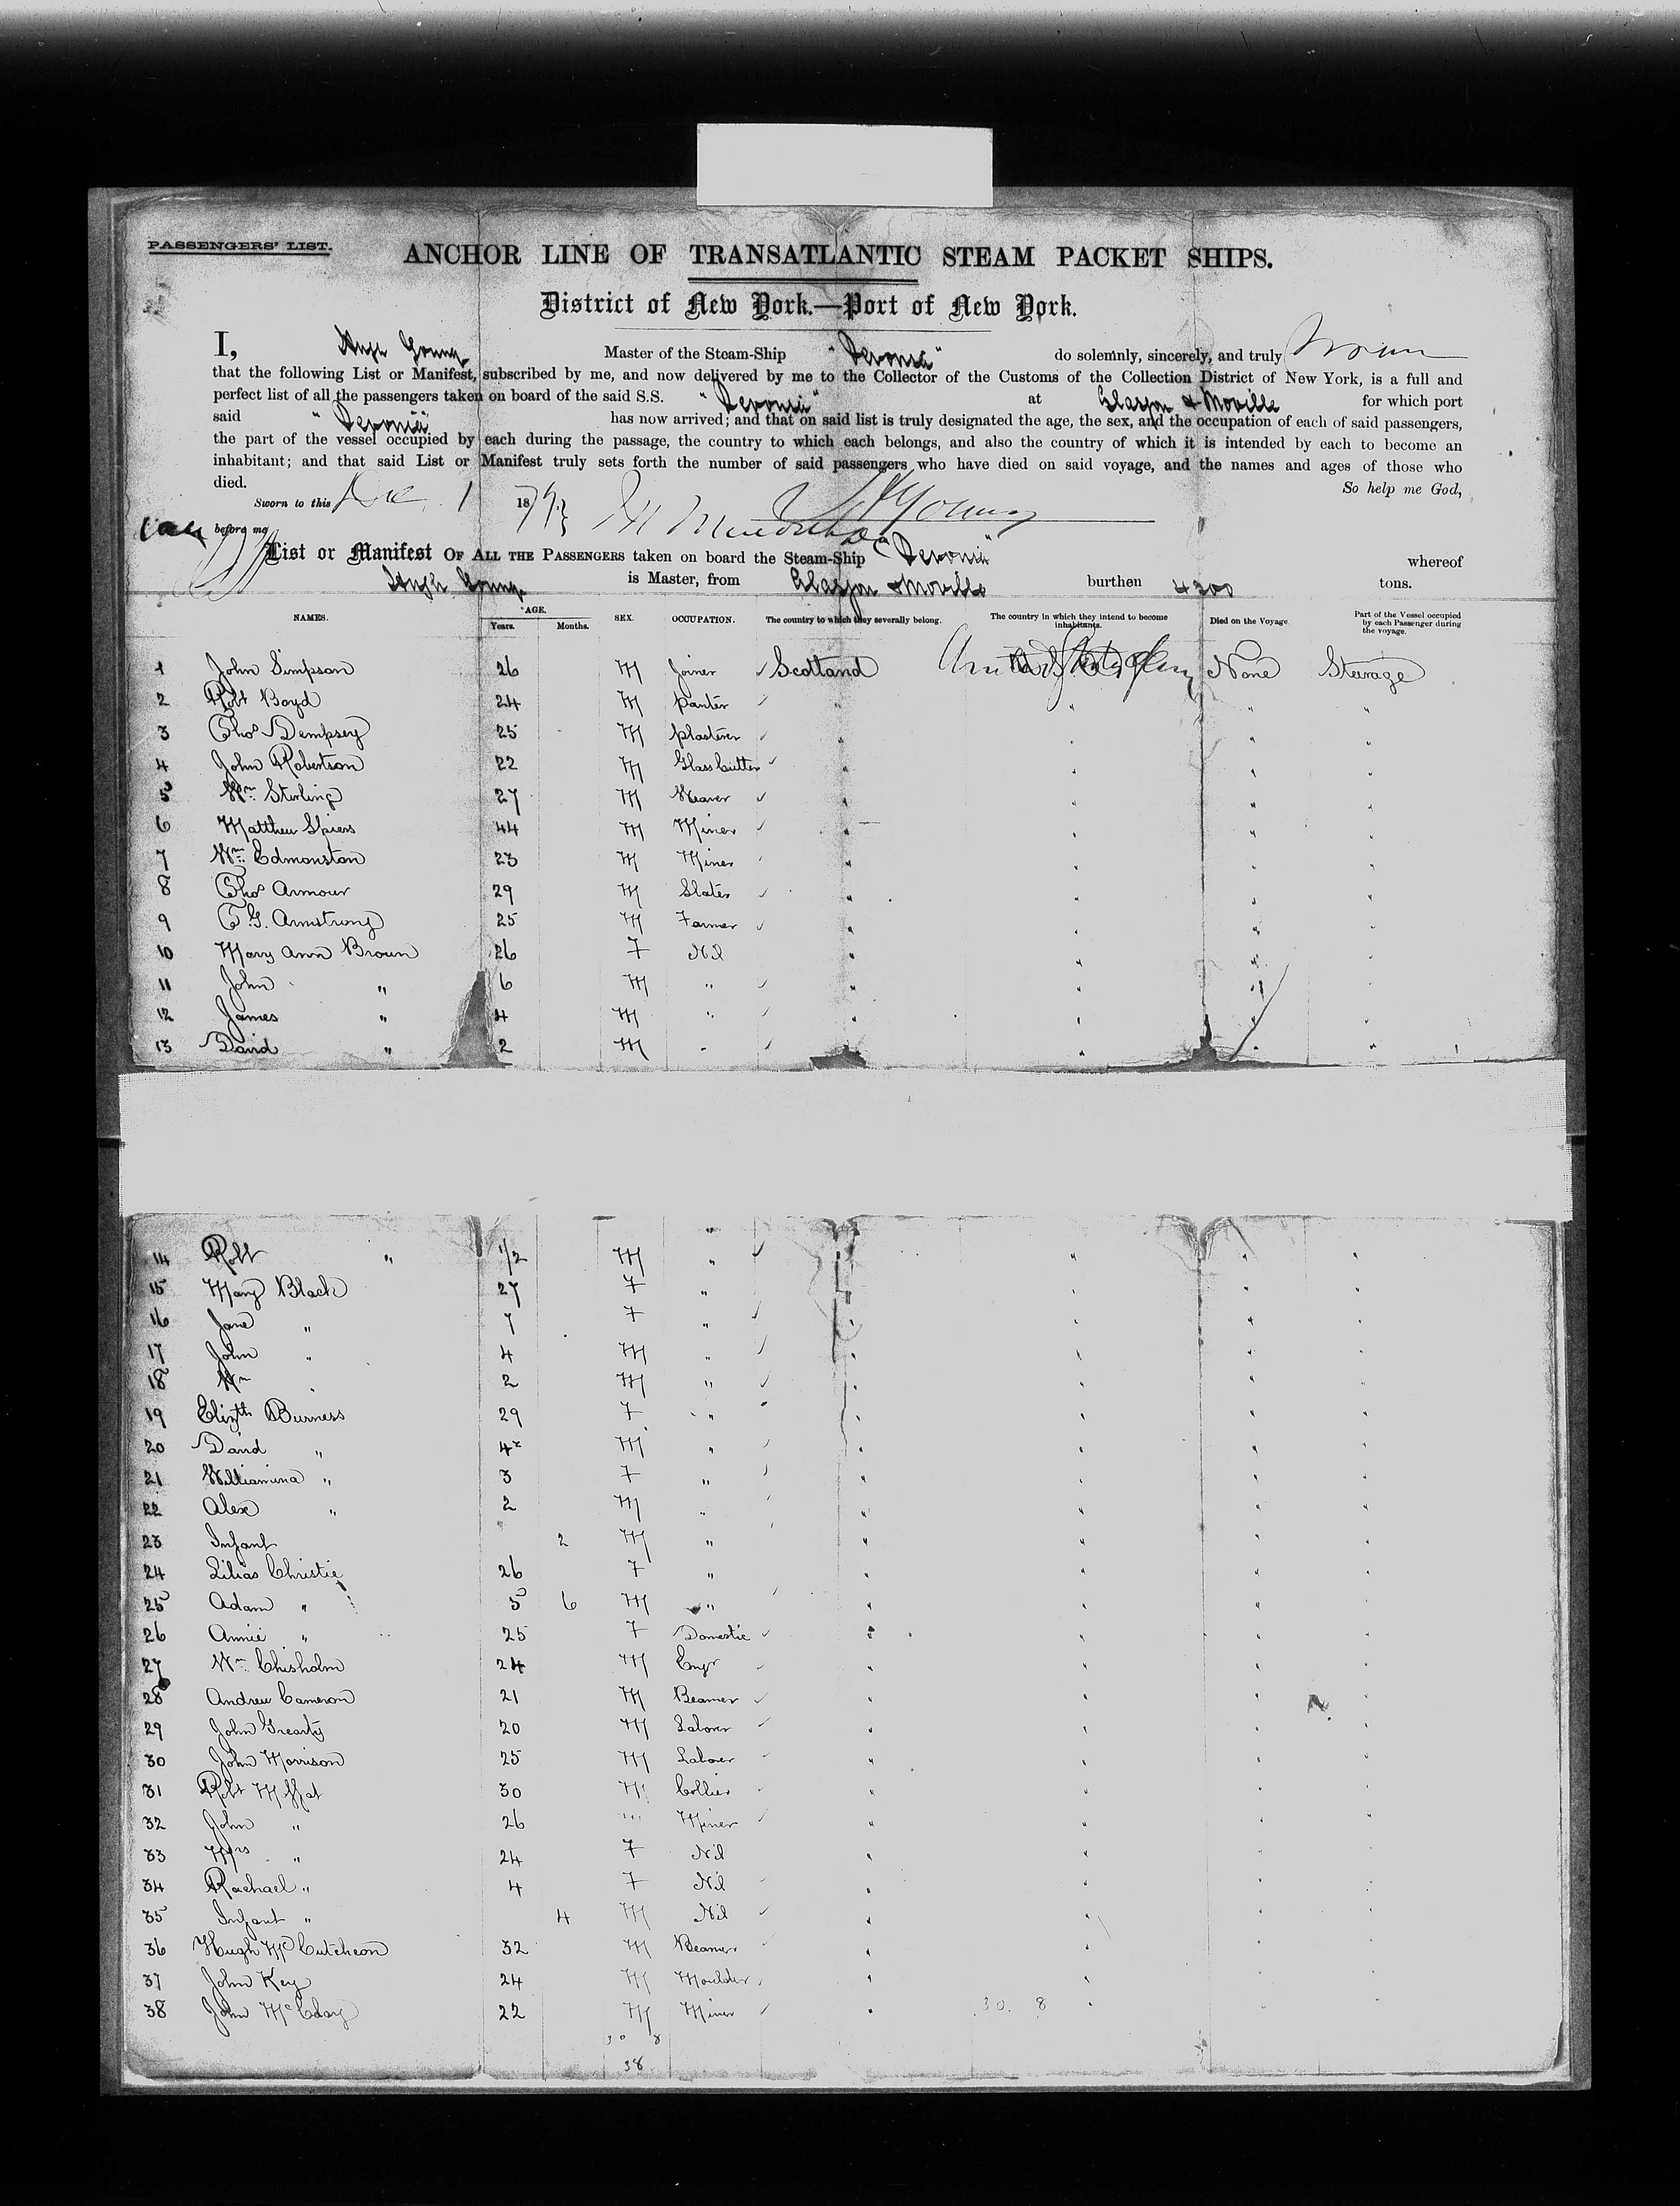 PASSENGERS' LIST.
ANCHOR LINE OF TRANSATLANTIC STEAM PACKET SHIPS.
District of New York.—Port of New York.
I, Hugh Young Master of the Steam-Ship "Devonia" do solemnly, sincerely, and truly
that the following List or Manifest, subscribed by me, and now delivered by me to the Collector of the Customs of the Collection District of New York, is a full and
perfect list of all the passengers taken on board of the said S.S. "Devonia" at Glasgow & Moville for which port
said "Devonia" has now arrived; and that on said list is truly designated the age, the sex, and the occupation of each of said passengers,
the part of the vessel occupied by each during the passage, the country to which each belongs, and also the country of which it is intended by each to become an
inhabitant; and that said List or Manifest truly sets forth the number of said passengers who have died on said voyage, and the names and ages of those who
died. So help me God,
Sworn to this Dec. 1 1879. H Young
before me
List or Manifest OF ALL THE PASSENGERS taken on board the Steam-Ship "Devonia" whereof
Hugh Young is Master, from Glasgow & Moville burthen 4200 tons.
NAMES. AGE. Years. Months. SEX. OCCUPATION. The country to which they severally belong. The country in which they intend to become inhabitants. Died on the Voyage. Part of the Vessel occupied by each Passenger during the voyage.
1 John Simpson 26 M Joiner Scotland None Steerage
2 Robt Boyd 24 M Panter " " " "
3 Thos Dempsey 25 M plasterer " " " "
4 John Robertson 22 M Glass Cutter " " " "
5 Wm Sterling 27 M Weaver " " " "
6 Matthew Spiers 44 M Miner " " " "
7 Wm Edmonston 23 M Miner " " " "
8 Thos Armour 29 M Slater " " " "
9 T. G. Armstrong 25 M Farmer " " " "
10 Mary Ann Brown 26 F Nil " " " "
11 John " 6 M " " " " "
12 James " 4 M " " " " "
13 David " 2 M " " " "
14 Robt " 1/2 M " " " " "
15 Mary Black 27 F " " " " "
16 Jane " 7 F " " " " "
17 John " 4 M " " " " "
18 Wm " 2 M " " " " "
19 Elizth Burness 29 F " " " " "
20 David " 4 M " " " " "
21 Williamina " 3 F " " " " "
22 Alex " 2 M " " " " "
23 Infant 2 M " " " " "
24 Lilias Christie 26 F " " " " "
25 Adam " 5 6 M " " " " "
26 Annie " 25 F Domestic " " " "
27 Wm Chisholm 24 M Engr " " " "
28 Andrew Cameron 21 M Beamer " " " "
29 John Grearty 20 M Laborer " " " "
30 John Morrison 25 M Laborer " " " "
31 Robt Moffat 30 M Collier " " " "
32 John " 26 " Miner " " " "
33 Mrs " 24 F Nil " " " "
34 Rachael " 4 F Nil " " " "
35 Infant " 4 M Nil " " " "
36 Hugh McCutcheon 32 M Beamer " " " "
37 John Key 24 M Moulder " " " "
38 John 22 M Miner " 30. 8 " " "
30 8
38